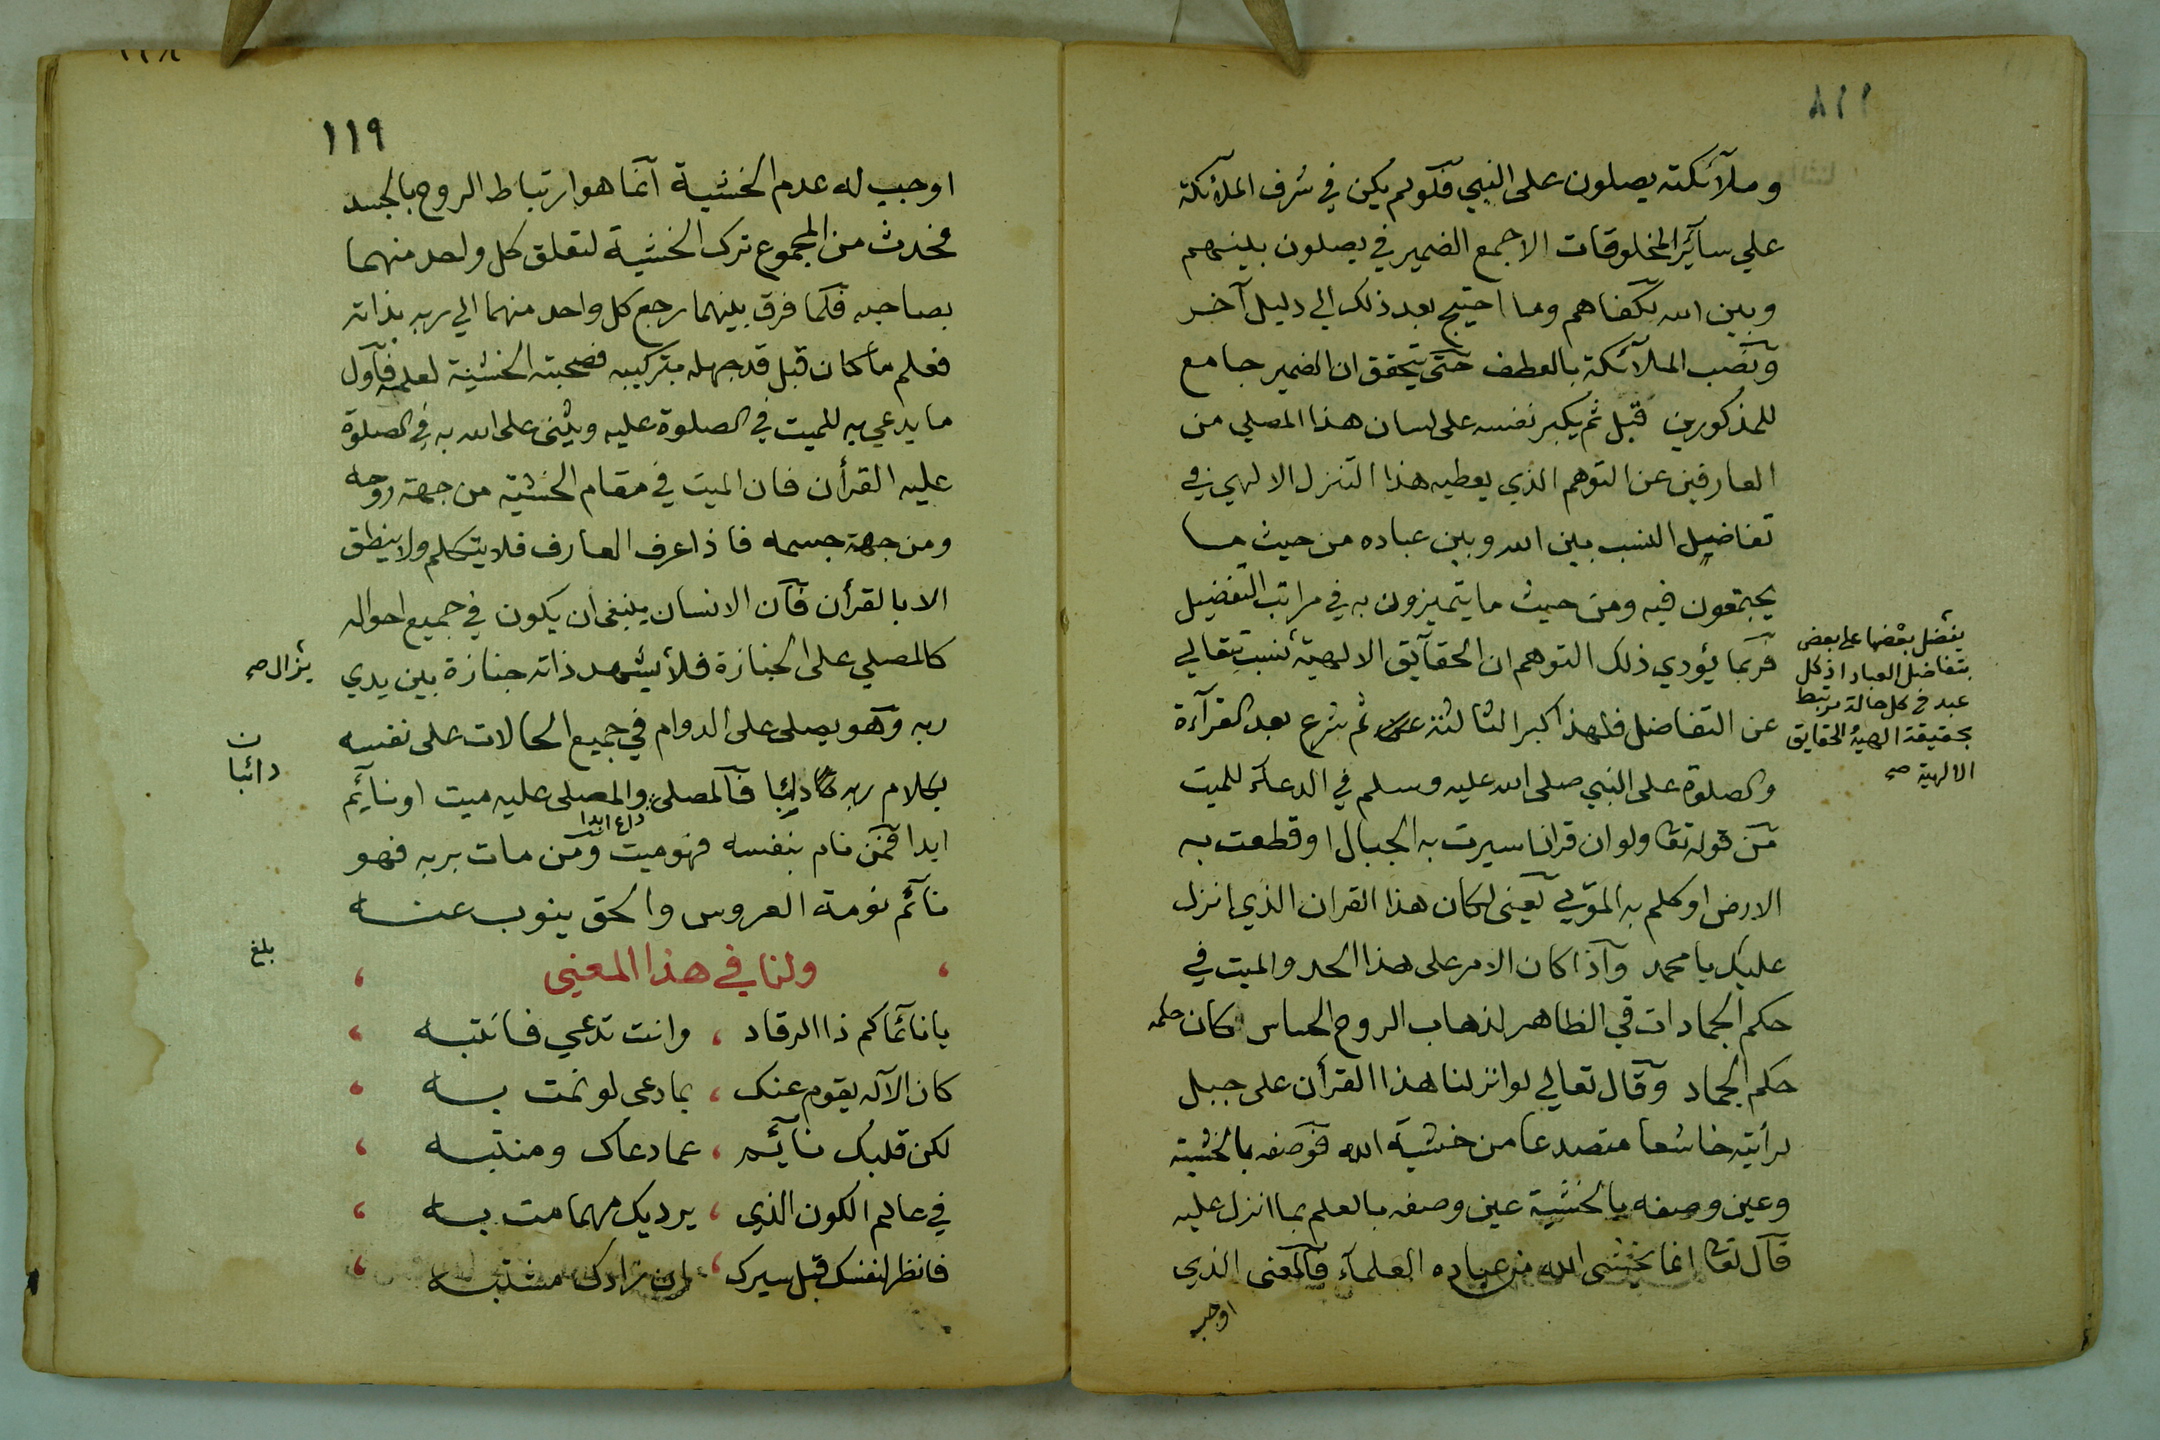 ١١٨
وملآئكته يصلون على النبي فلو لم يكن في شرف الملائكة
علي سآئر المخلوقات الا جمع الضمير في يصلون بينهم
وبين الله لكفاهم وما احتيج بعد ذلك الي دليل آخر
ونصب الملآئكة بالعطف حتى يتحقق ان الضمير جامع
للمذكورين قبل ثم يكبر نفسه على لسان هذا المصلي من
العارفين عن التوهم الذي يعطيه هذا التنزل الالهي في
تفاضيل النسب بين الله وبين عباده من حيث ما
يجتمعون فيه ومن حيث ما يتميزون به في مراتب التفضيل
فربما يؤدي ذلك التوهم ان الحقآيق الالهية نسب تتعالي
عن التفاضل فلهذا كبر الثالثة ثم شرع بعد القرآءة
والصلوة على النبي صلى الله عليه وسلم في الدعآء للميت
من قوله تعا ولو ان قرانا سيرت به الجبال او قطعت به
الارض او كلم به الموتي يعني لكان هذا القران الذي انزل
عليك يا محمد وآذا كان الامر على هذا الحد والميت في
حكم الجمادات في الظاهر لذهاب الروح الحساس كان حكمه
حكم الجماد وقال تعالي لو انزلنا هذا القرأن على جبل
لرأيته خاشعا متصدعا من خشية الله فوصفه بالخشية
وعين وصفه بالخشية عين وصفه بالعلم بما انزل عليه
قال تعا انما يخشى الله من عباده العلمآء فالمعنى الذي
اوجب
يفضل بعضها على بعض
بتفاضل العباد اذ كل
عبد في كل حالة مرتبط
بحقيقة الهية والحقايق
الالهية صح
١١٩
اوجب له عدم الخشية انما هو ارتباط الروح بالجسد
فحدث من المجموع ترك الخشية لتعلق كل واحد منهما
بصاحبه فلما فرق بينهما رجع كل واحد منهما الي ربه بذاته
فعلم ما كان قبل قد جهله بتركيبه فصحبته الخشية لعلمه فآول
ما يدعي به للميت في الصلوة عليه ويثنى على الله به في الصلوة
عليه القرأن فان الميت في مقام الخشية من جهة روحه
ومن جهة جسمه فاذا عرف العارف فلا يتكلم ولا ينطق
الا بالقرأن فآن الانسان ينبغى ان يكون في جميع احواله
كالمصلي على الجنازة فلا يشهد ذاته جنازة بين يدي
ربه وهو يصلى على الدوام في جميع الحالات على نفسه
بكلام ربه دائبا فالمصلى والمصلى عليه ميت او نآيم
ابدا فمن نام بنفسه فهو ميت ومن مات بربه فهو
نآئم نومة العروس والحق ينوب عنه
ولنا في هذا المعنى
يا نائما كم ذا الرقاد ، وانت تدعي فانتبه
كان الآله يقوم عنك ، بما دعى لو نمت به
لكن قلبك نآئم ، عما دعاك ومنتبه
في عالم الكون الذي ، يرديك مهما مت به
فانظر لنفسك قبل سيرك ، ان زادك مشتبه
يزال صح
دائبا
بلغ